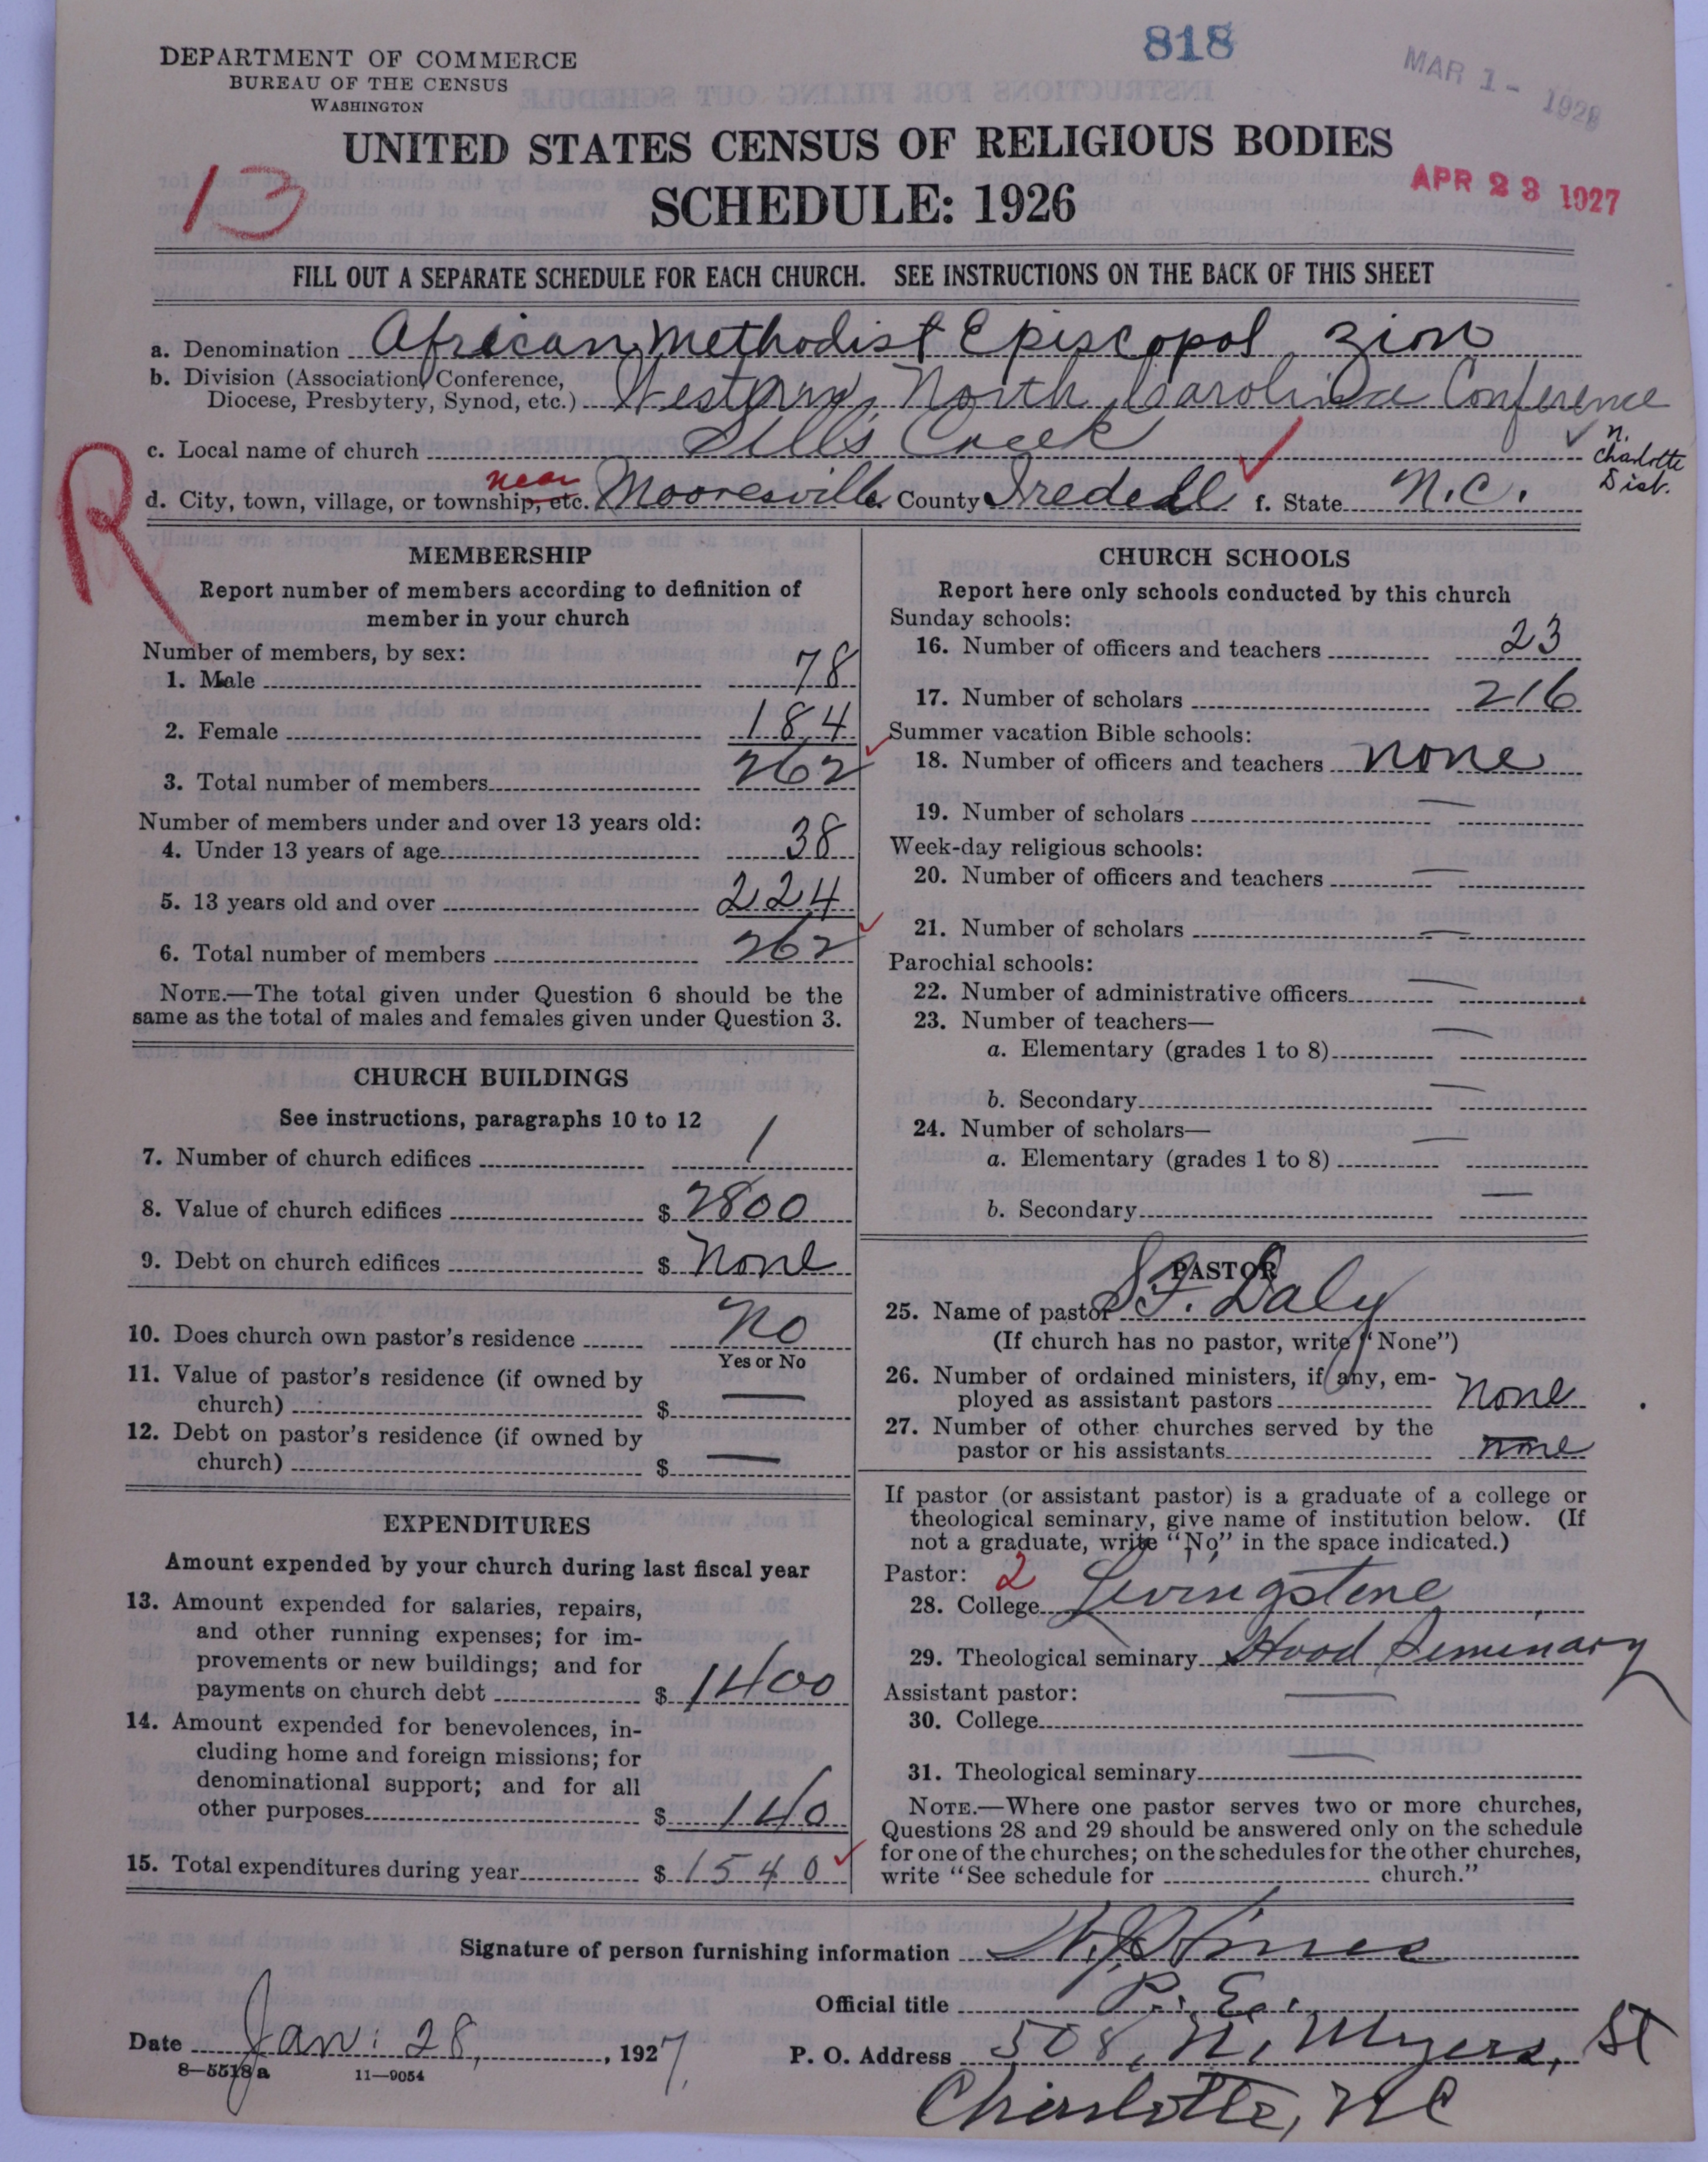 818
MAR 1 - 1928
DEPARTMENT OF COMMERCE
BUREAU OF THE CENSUS
WASHINGTON
UNITED STATES CENSUS OF RELIGIOUS BODIES
SCHEDULE: 1926
13
APR 23 1927
FILL OUT A SEPARATE SCHEDULE FOR EACH CHURCH. SEE INSTRUCTIONS ON THE BACK OF THIS SHEET
a. Denomination African Methodist Episcopol Zion
b. Division (Association, Conference,
Diocese, Presbytery, Synod, etc.) Western North Carolina Conference
c. Local name of church Sills Creek
n. Charlotte Dist.
R
d. City, town, village, or township, etc. near Mooresville e. County Iredell f. State N.C.
MEMBERSHIP
Report number of members according to definition of
member in your church
Number of members, by sex:
1. Male 78
2. Female 184
3. Total number of members 262
Number of members under and over 13 years old:
4. Under 13 years of age 38
5. 13 years old and over 224
6. Total number of members 262
NOTE.—The total given under Question 6 should be the
same as the total of males and females given under Question 3.
CHURCH BUILDINGS
See instructions, paragraphs 10 to 12
7. Number of church edifices 1
8. Value of church edifices $ 2800
9. Debt on church edifices $ None
10. Does church own pastor's residence No
Yes or No
11. Value of pastor's residence (if owned by
church) $ —
12. Debt on pastor's residence (if owned by
church) $ —
EXPENDITURES
Amount expended by your church during last fiscal year
13. Amount expended for salaries, repairs,
and other running expenses; for im-
provements or new buildings; and for
payments on church debt $ 1400
14. Amount expended for benevolences, in-
cluding home and foreign missions; for
denominational support; and for all
other purposes $ 140
15. Total expenditures during year $ 1540
CHURCH SCHOOLS
Report here only schools conducted by this church
Sunday schools:
16. Number of officers and teachers 23
17. Number of scholars 216
Summer vacation Bible schools:
18. Number of officers and teachers none
19. Number of scholars —
Week-day religious schools:
20. Number of officers and teachers —
21. Number of scholars —
Parochial schools:
22. Number of administrative officers —
23. Number of teachers—
a. Elementary (grades 1 to 8) —
b. Secondary —
24. Number of scholars—
a. Elementary (grades 1 to 8) —
b. Secondary —
PASTOR
25. Name of pastor S.F. Daly
(If church has no pastor, write "None")
26. Number of ordained ministers, if any, em-
ployed as assistant pastors none
27. Number of other churches served by the
pastor or his assistants none
If pastor (or assistant pastor) is a graduate of a college or
theological seminary, give name of institution below. (If
not a graduate, write "No" in the space indicated.)
Pastor: 2
28. College Livingstone
29. Theological seminary Hood Seminary
Assistant pastor:
30. College —
31. Theological seminary —
NOTE.—Where one pastor serves two or more churches,
Questions 28 and 29 should be answered only on the schedule
for one of the churches; on the schedules for the other churches,
write "See schedule for church."
Signature of person furnishing information
Official title P. E.
Date Jan. 28, 1927.
P. O. Address 508, N. Myers, St
Charlotte, NC
8—5518 a 11—9054